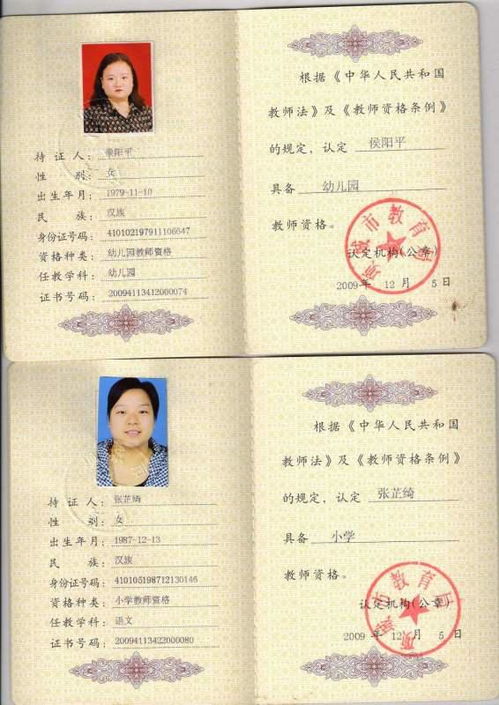 持证人：侯阳平
性别：女
出生年月：1979-11-10
民族：汉族
身份证号码：410102197911106647
资格种类：幼儿园教师资格
任教学科：幼儿园
证书号码：20094113412000074
根据《中华人民共和国
教师法》及《教师资格条例》
的规定，认定 侯阳平
具备 幼儿园
教师资格。
项城市教育局
认定机构(公章)
2009 年 12 月 5 日
持证人：张芷绮
性别：女
出生年月：1987-12-13
民族：汉族
身份证号码：410105198712130146
资格种类：小学教师资格
任教学科：语文
证书号码：20094113422000080
根据《中华人民共和国
教师法》及《教师资格条例》
的规定，认定 张芷绮
具备 小学
教师资格。
项城市教育局
认定机构(公章)
2009 年 12 月 5 日